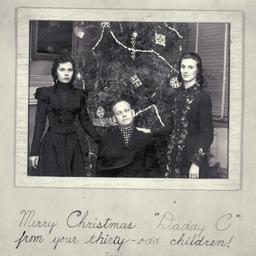 Merry Christmas "Daddy C"
from your thirty-odd children!